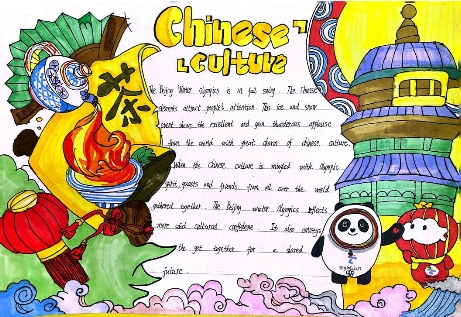 Chinese
culture
茶
The Beijing Winter Olympics is in full swing. The Chinese
elements attract people's attention. This ice and snow
event shows the excellent and gain thunderous applause
from the world with great charm of chinese culture.
When the Chinese culture is mingled with Olympic
spirit, guests and friends from all over the world
gathered together. The Beijing winter Olympics reflects
more solid cultural confidence. It also conveys
the get together for a shared
future.